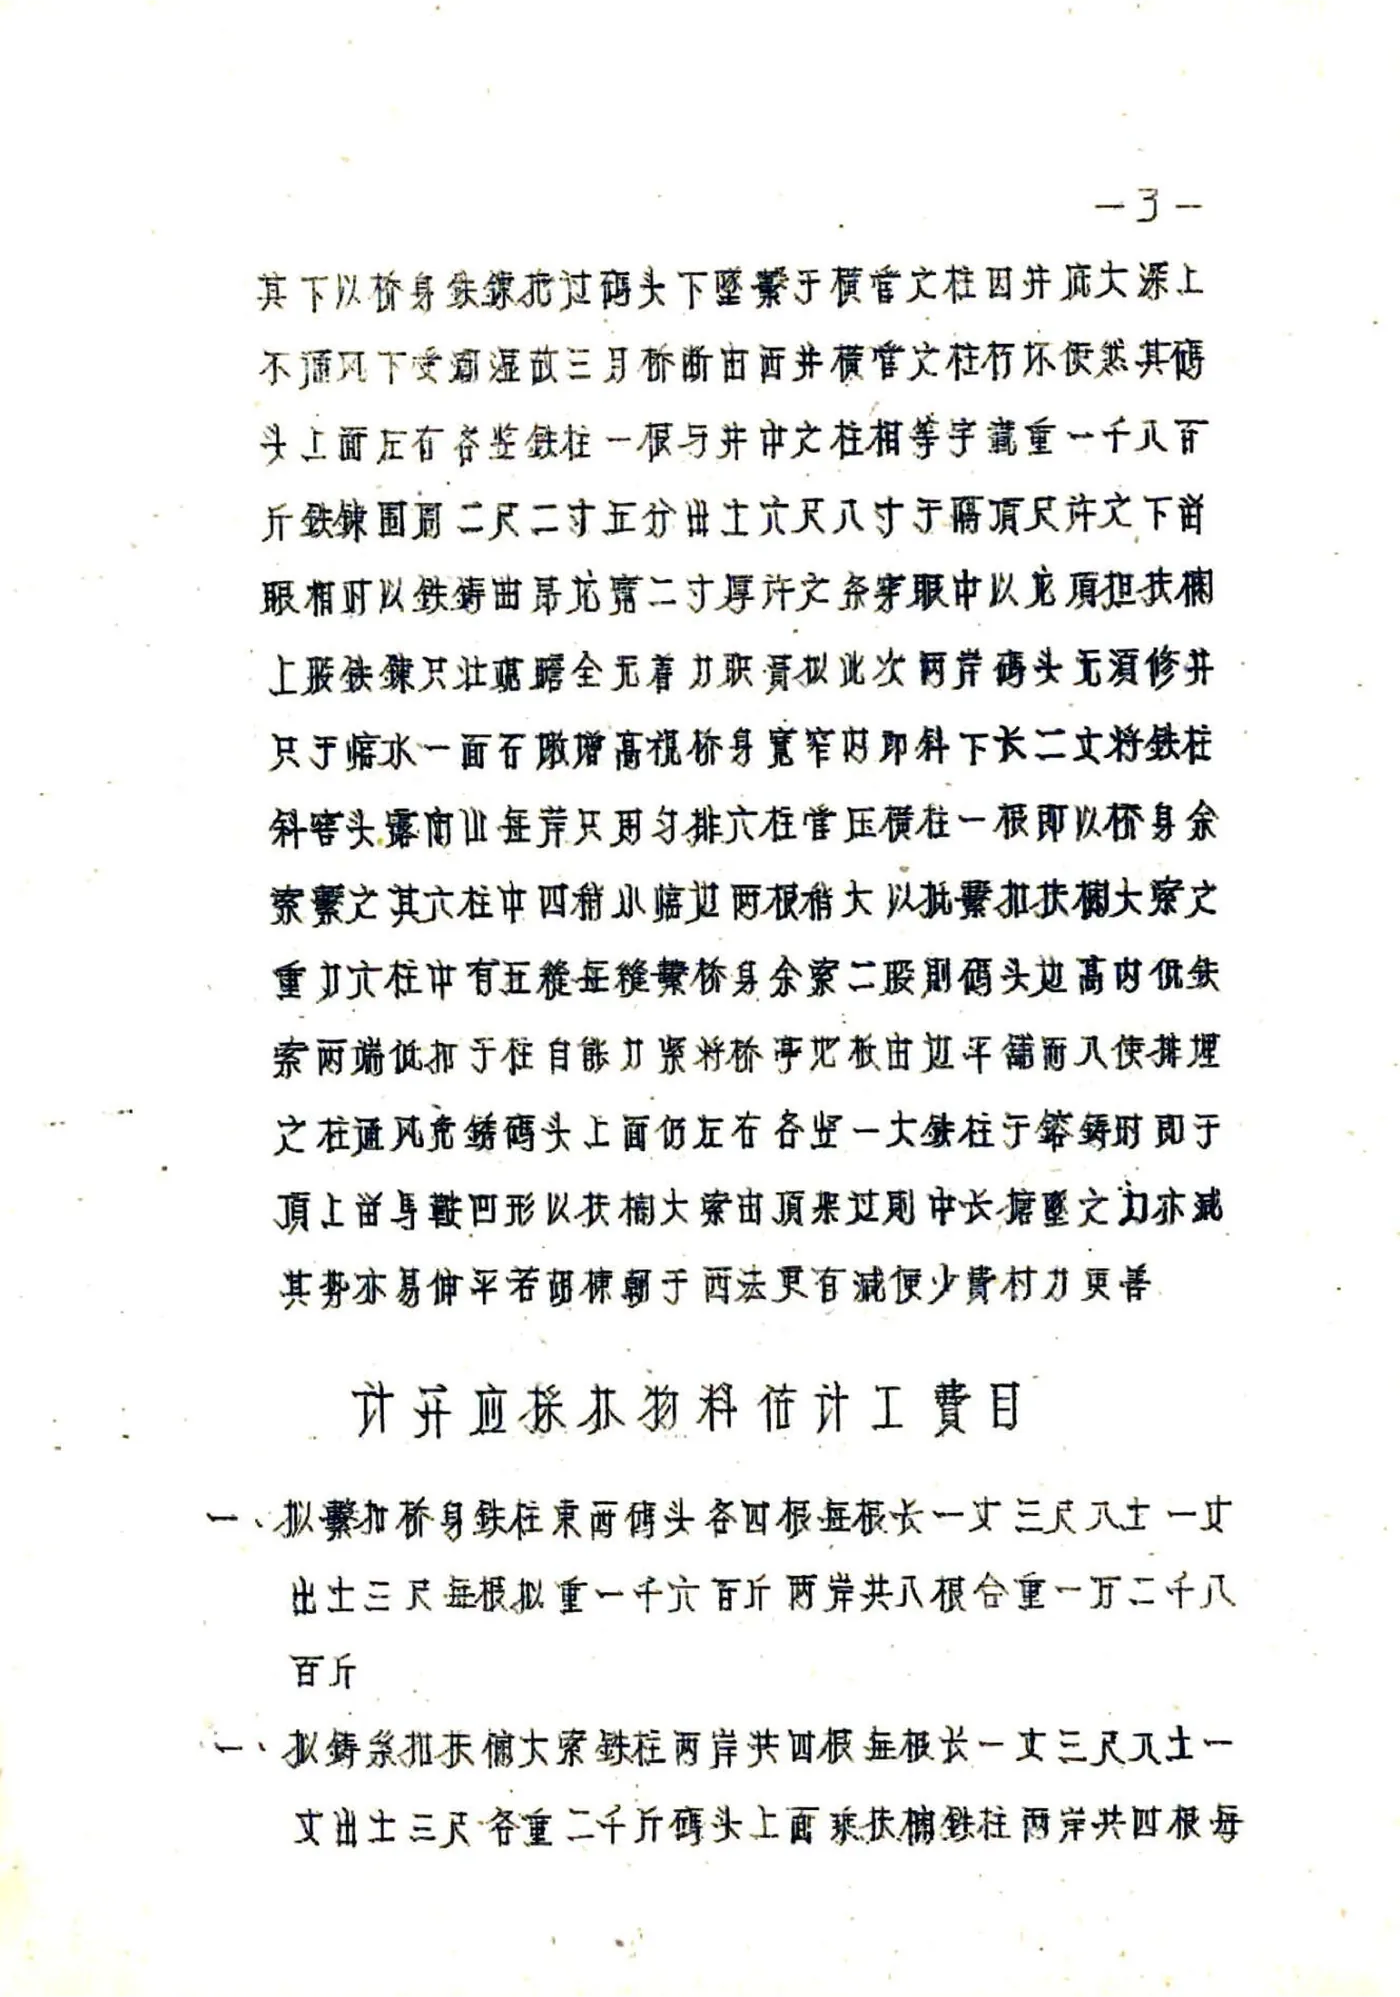 —3—
其下以桥身鉄鍊挖过碼头下墜繫于橫管之柱因井底大深上
不通风下受潮湿故三月桥断由西井橫管之柱朽坏使然其碼
头上面左右各竖鉄柱一根与井中之柱相等字藏重一千八百
斤鉄鍊围周二尺二寸五分出土六尺八寸于隔頂尺许之下凿
眼相对以鉄鋳曲昂龙露二寸厚许之条穿眼中以龙項担扶欄
上股鉄鍊只壮观瞻全无着力职責拟此次两岸碼头无須修井
只于临水一面石墩增高视桥身宽窄內即斜下长二丈将鉄柱
斜窖头露南山每岸只用匀排六柱管压橫柱一根即以桥身余
索繫之其六柱中四稍小临边两根稍大以批繫扣扶欄大索之
重力六柱中有五縫每縫繫桥身余索二股則碼头边高内低鉄
索两端低扣于柱自能力紧将桥亭地板由边平舖而入使排埋
之柱通风免銹碼头上面仍左右各竖一大鉄柱于鎔鋳时即于
頂上凿身鞍凹形以扶欄大索由頂架过則中长搪墜之力亦減
其势亦易伸平若胡棟朝于西法更有減便少費材力更善
计开应採办物料估计工費目
一、拟繫扣桥身鉄柱東西碼头各四根每根长一丈三尺入土一丈
出土三尺每根拟重一千六百斤两岸共八根合重一万二千八
百斤
一、拟鋳条扣扶欄大索鉄柱两岸共四根每根长一丈三尺入土一
丈出土三尺各重二千斤碼头上面乘扶欄鉄柱两岸共四根每